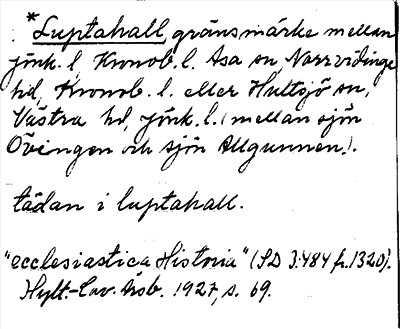 *Luptahall, gränsmärke mellan
jönk. l, Kronob. l. Asa sn Norrvidinge
hd, Kronob. l. eller Hultsjö sn,
Västra hd, jönk. l. (mellan sjön
Övingen och sjön Allgunnen).
tädan i luptahall.
"ecclesiastica Historia" (SD 3:484 f. 1320).
Hylt.-Cav. Årsb. 1927, s. 69.